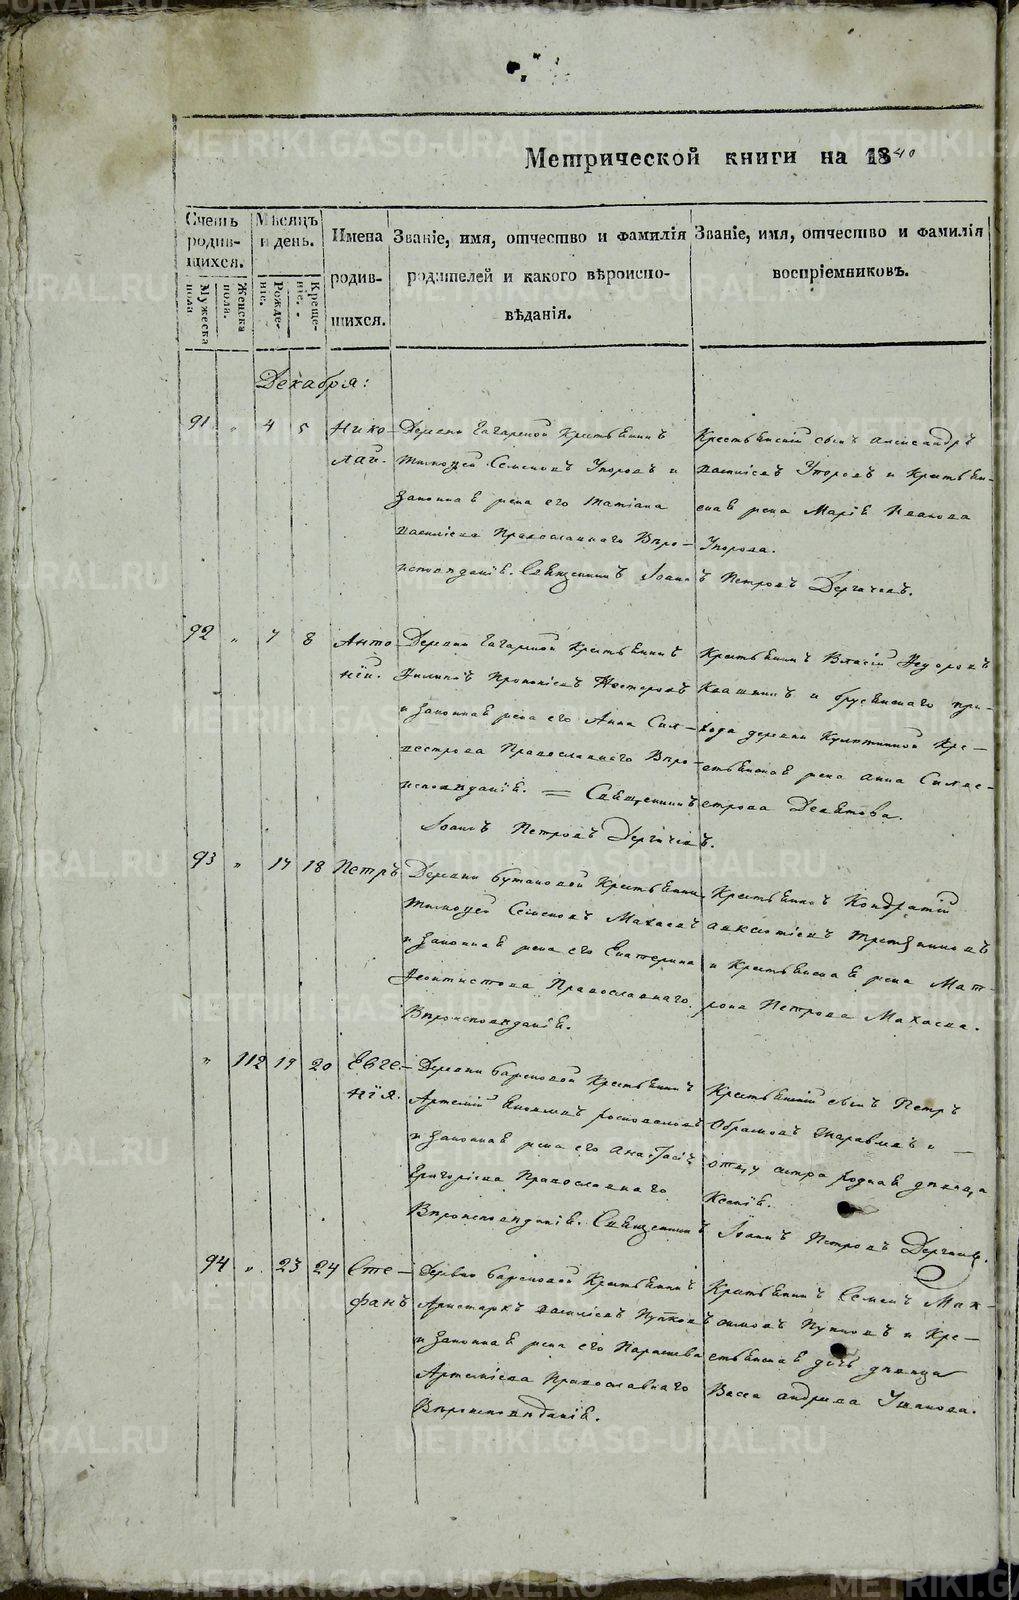 Метрической книги на 1840
Счетъ родив-щихся.
Мужеска пола
Женска пола.
Мѣсяцъ и день.
Рожде-ніе.
Креще-ніе.
Имена родив-шихся.
Званіе, имя, отчество и фамилія родителей и какого вѣроиспо-вѣданія.
Званіе, имя, отчество и фамилія воспріемниковъ.
Декабря:
91 " 4 5 Нико-лай.
Деревни Гагариной Крестьянинъ
Семеновъ и
Законная жена его Татіана
Василіева Православнаго Вѣро-
исповѣданія. Священникъ Іоаннъ Петровъ Дергачевъ.
Крестьянскій сынъ Александръ
Василіевъ и Крестьян-
ская жена Марія Иванова
92 " 7 8 Анто-ній.
Деревни Гагариной Крестьянинъ
Филипъ Прокопіевъ Нестеровъ
и Законная жена его Анна Сил-
вестрова Православнаго Вѣро-
исповѣданія. = Священникъ
Іоаннъ Петровъ Дергачевъ.
Крестьянинъ Власій Федоровъ
Квашнинъ и при-
хода деревни Кре-
стьянская жена Анна Силве-
строва Девятова.
93 " 17 18 Петръ
Деревни Бутаковой Крестьянинъ
Семеновъ Махаевъ
и Законная жена его Екатерина
Феоктистова Православнаго
Вѣроисповѣданія.
Крестьянинъ Кондратій
и Крестьянская жена Мат-
рона Петрова Махаева.
" 112 19 20 Евге-нія.
Деревни Крестьянинъ
Артемій
и Законная жена его Анастасія
Григоріева Православнаго
Вѣроисповѣданія. Священникъ Іоаннъ Петровъ Дергачевъ.
Крестьянскій сынъ Петръ
сестра родная дѣвица
Ксенія.
94 " 23 24 Сте-фанъ
Деревни Крестьянинъ
Аристархъ Василіевъ Пупковъ
и Законная жена его Парасковія
Артеміева Православнаго
Вѣроисповѣданія.
Крестьянинъ Семенъ Мак-
симовъ Пупковъ и Кре-
стьянская дочь дѣвица
Васса Андреева Ушакова.
METRIKI.GASO-URAL.RU